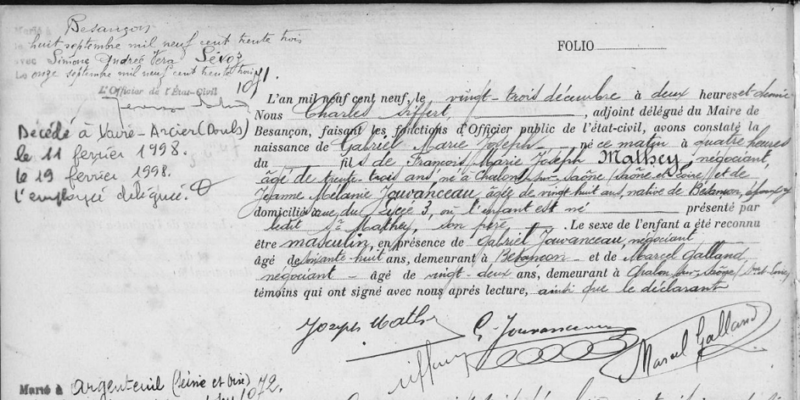 Besançon
huit septembre mil neuf cent trente trois
avec Simone Andrée Vera
Le onze septembre mil neuf cent trente trois
1071.
L'Officier de l'État-Civil
Décédé à Vaire-Arcier (Doubs)
le 11 février 1998.
le 19 février 1998.
l'employée déléguée.
FOLIO
L'an mil neuf cent neuf, le vingt-trois décembre à deux heures et demie
Nous Charles Siffert, adjoint délégué du Maire de
Besançon, faisant les fonctions d'Officier public de l'état-civil, avons constaté la
naissance de Gabriel Marie Joseph né ce matin à quatre heures
du fils de François Marie Joseph Mathey, négociant,
âgé de trente trois ans, né à Chalon sur Saône (Saône et Loire) et de
Jeanne Mélanie Jouvanceau, âgée de vingt huit ans, native de Besançon,
domiciliés rue du 3, où l'enfant est né présenté par
ledit Sr Mathey, son père. Le sexe de l'enfant a été reconnu
être masculin, en présence de Gabriel Jouvanceau, négociant
âgé de soixante huit ans, demeurant à Besançon - et de Marcel Galland,
négociant - âgé de vingt-deux ans, demeurant à Chalon sur Saône,
témoins qui ont signé avec nous après lecture, ainsi que le déclarant
Joseph Mathey
G. Jouvanceau
Siffert
Marcel Galland
Marié à Argenteuil (Seine et Oise)
1072.